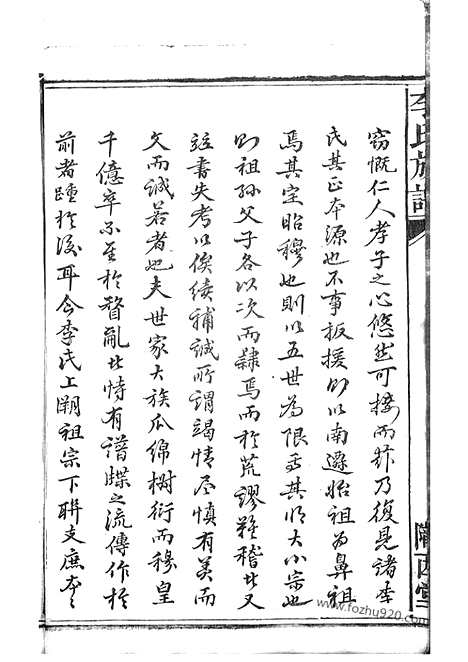 李氏族譜
隴西堂
竊慨仁人孝子之心悠然可接而於乃復見諸李
氏其正本源也不事扳援則以南遷始祖為鼻祖
焉其定昭穆也則以五世為限至其明大小宗也
則祖孫父子各以次而隸焉而於荒謬難稽者又
註書失考以俟續補誠所謂竭情尽慎有美而
文而誠若者也夫世家大族瓜綿樹衍而穆皇
千億卒不至於瞀亂者恃有譜牒之流傳作於
前者踵於後耳今李氏上溯祖宗下聯支庶本之
www.fozhu920.com